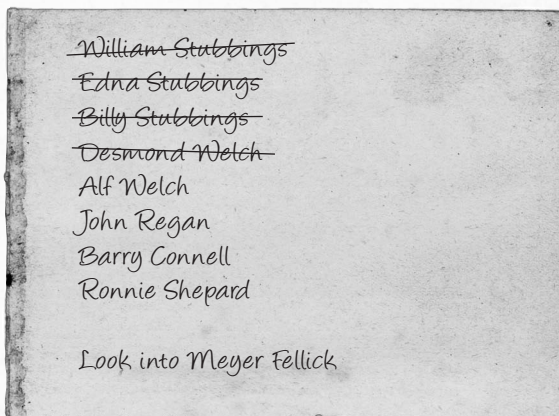 William Stubbings
Edna Stubbings
Billy Stubbings
Desmond Welch
Alf Welch
John Regan
Barry Connell
Ronnie Shepard
Look into Meyer Fellick